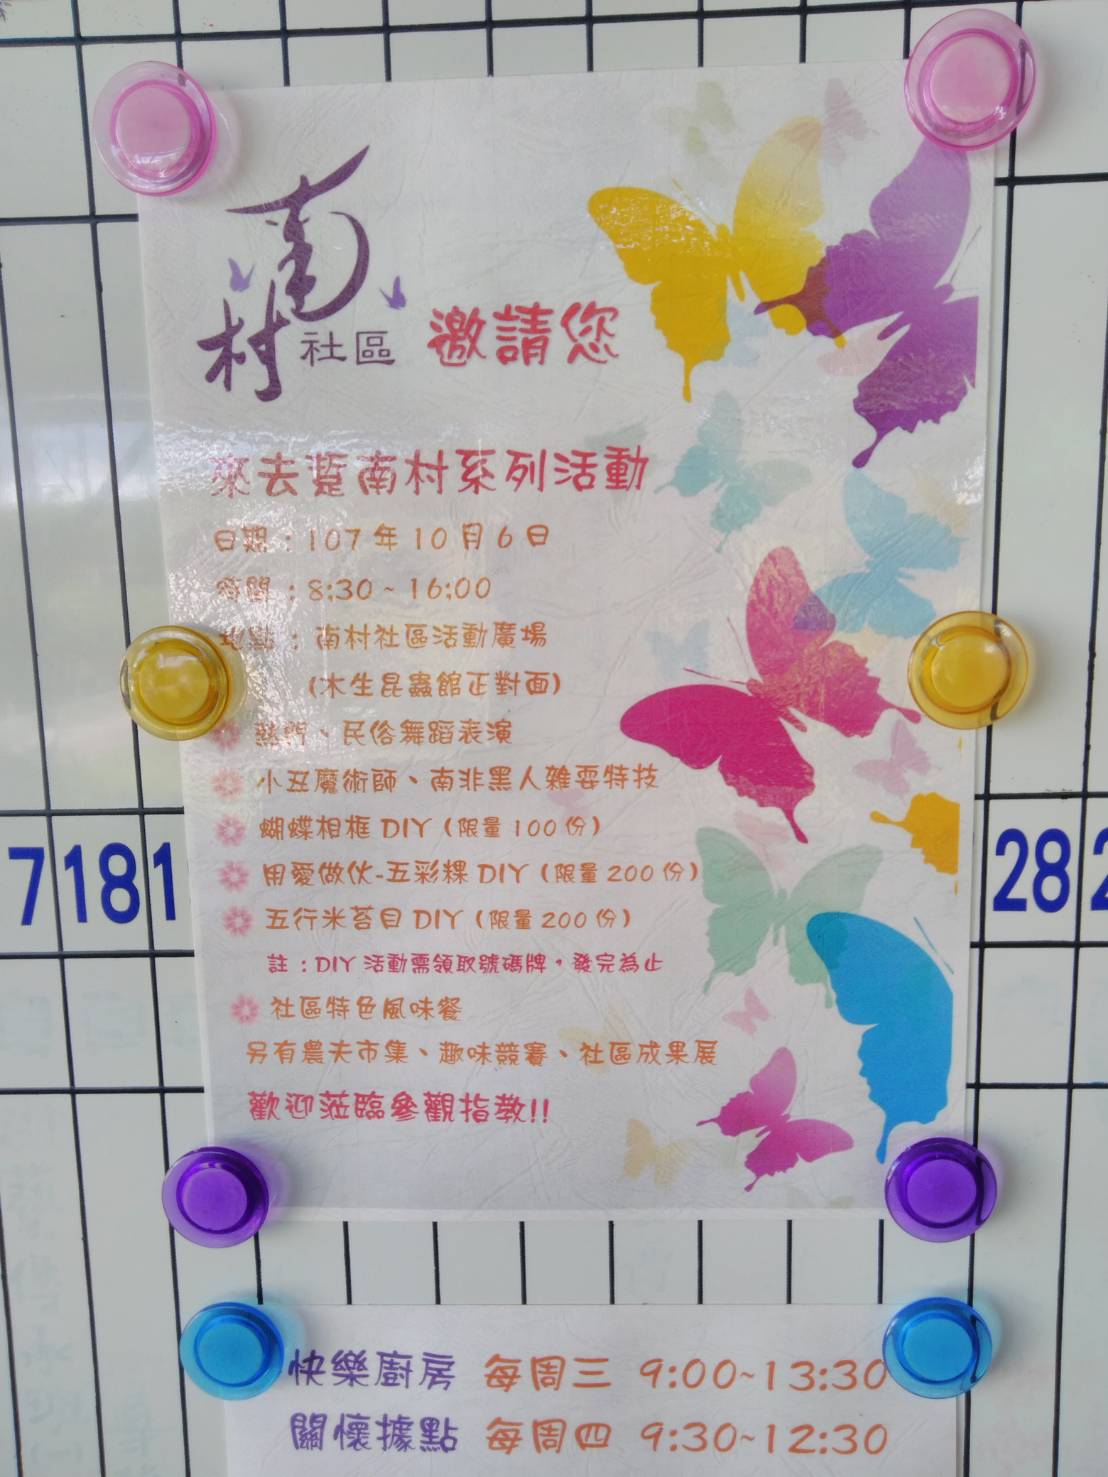 南村社區 邀請您
來去踅南村系列活動
日期：107年10月6日
時間：8:30~16:00
地點：南村社區活動廣場
(木生昆蟲館正對面)
熱門、民俗舞蹈表演
小丑魔術師、南非黑人雜耍特技
蝴蝶相框DIY（限量100份）
用愛做伙-五彩粿DIY（限量200份）
五行米苔目DIY（限量200份）
註：DIY活動需領取號碼牌，發完為止
社區特色風味餐
另有農夫市集、趣味競賽、社區成果展
歡迎蒞臨參觀指教!!
7 18 1
28 2
快樂廚房 每周三 9:00~13:30
關懷據點 每周四 9:30~12:30